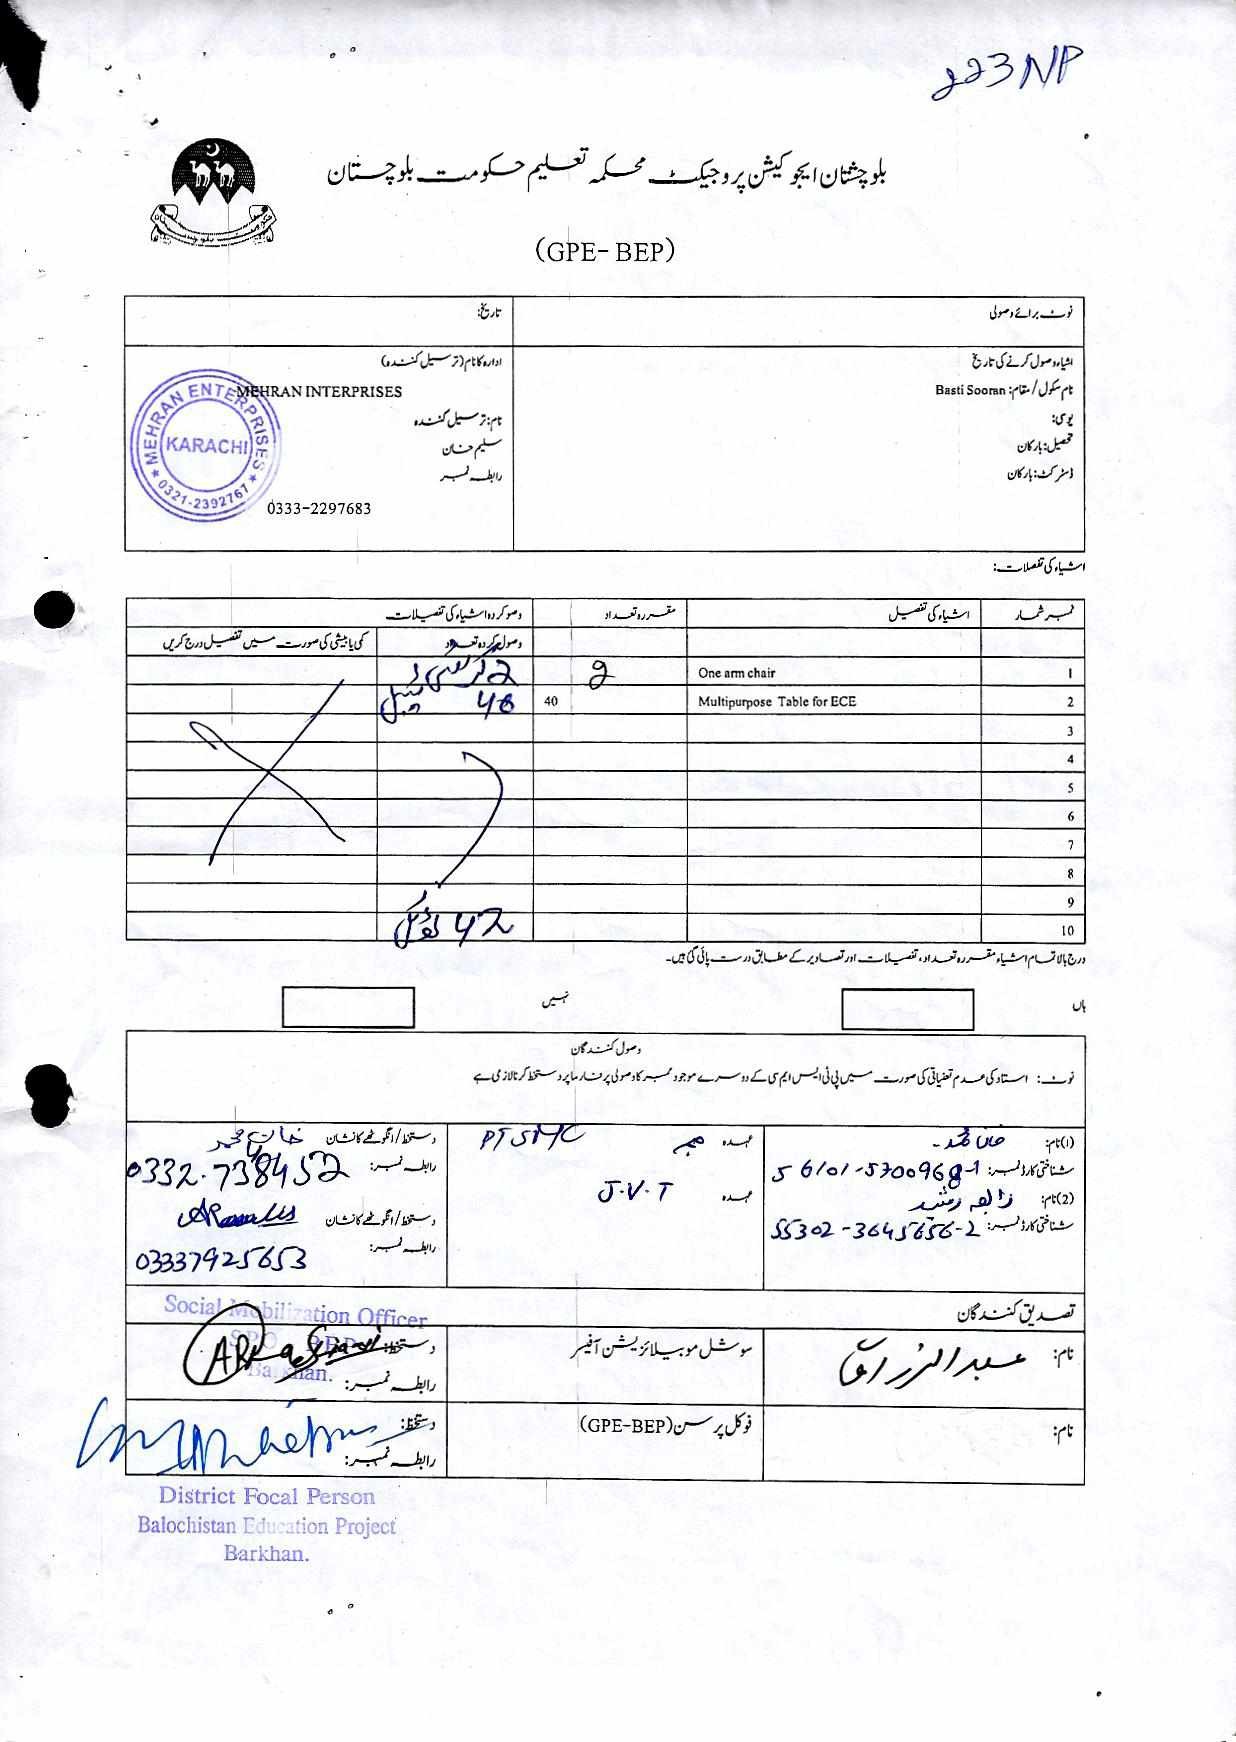 223 NP
بلوچستان ایجوکیشن پروجیکٹ محکمہ تعلیم حکومت بلوچستان
(GPE- BEP)
نوٹ برائے وصولی
تاریخ:
اشیاء وصول کرنے کی تاریخ
نام سکول / مقام: Basti Sooran
یو سی:
تحصیل: بارکان
ڈسٹرکٹ: بارکان
ادارہ کا نام (ترسیل کنندہ)
MEHRAN INTERPRISES
نام: ترسیل کنندہ
سلیم خان
رابطہ نمبر
0333-2297683
MEHRAN ENTERPRISES
KARACHI
0321-2392767
اشیاء کی تفصلات:
نمبر شمار اشیاء کی تفصیل مقررہ تعداد وصو کردہ اشیاء کی تفصیلات
وصول کردہ تعداد کمی یا بیشی کی صورت میں تفصیل درج کریں
1 One arm chair 2 2 کرسی
2 Multipurpose Table for ECE 40 40 ٹیبل
3
4
5
6
7
8
9
10 42 ٹوٹل
درج بالا تمام اشیاء مقررہ تعداد، تفصیلات اور تصاویر کے مطابق درست پائی گئی ہیں۔
ہاں
نہیں
وصول کنندگان
نوٹ: استاد کی عدم تعیناتی کی صورت میں پی ٹی ایس ایم سی کے دوسرے موجود ممبر کا وصولی پر فارما پر دستخط کرنا لازمی ہے
(1) نام: خان محمد عہدہ ممبر PTSMC دستخط / انگوٹھے کا نشان خان محمد
شناختی کارڈ نمبر: 56101-5700968-1 رابطہ نمبر: 0332-738452
(2) نام: زاہد رشید عہدہ J.V.T دستخط / انگوٹھے کا نشان
شناختی کارڈ نمبر: 55302-3645656-2 رابطہ نمبر: 03337925653
تصدیق کنندگان
Social Mobilization Officer
SPO BEP
Barkhan.
نام: عبدالرزاق سوشل موبیلائزیشن آفیسر دستخط:
رابطہ نمبر:
نام: فوکل پرسن (GPE-BEP) دستخط:
رابطہ نمبر:
District Focal Person
Balochistan Education Project
Barkhan.